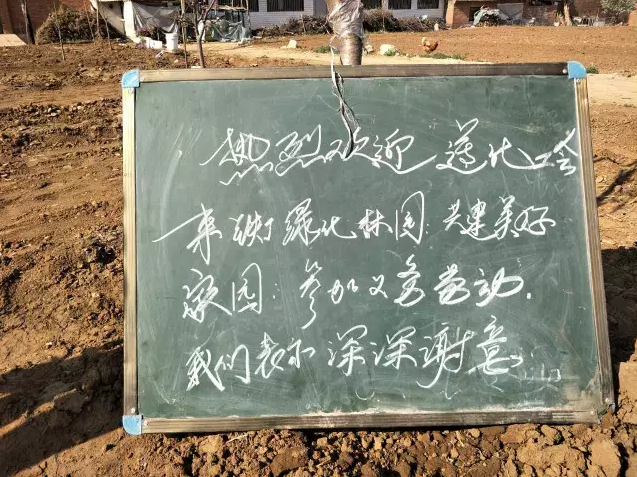 热烈欢迎遵化工会
来我们绿化林园:共建美好
家园:参加义务劳动.
我们表示深深谢意